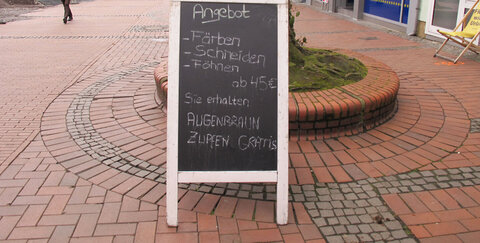 Angebot
- Färben
- Schneiden
- Föhnen
ab 45€
Sie erhalten
AUGENBRAUN
ZUPFEN GRATIS